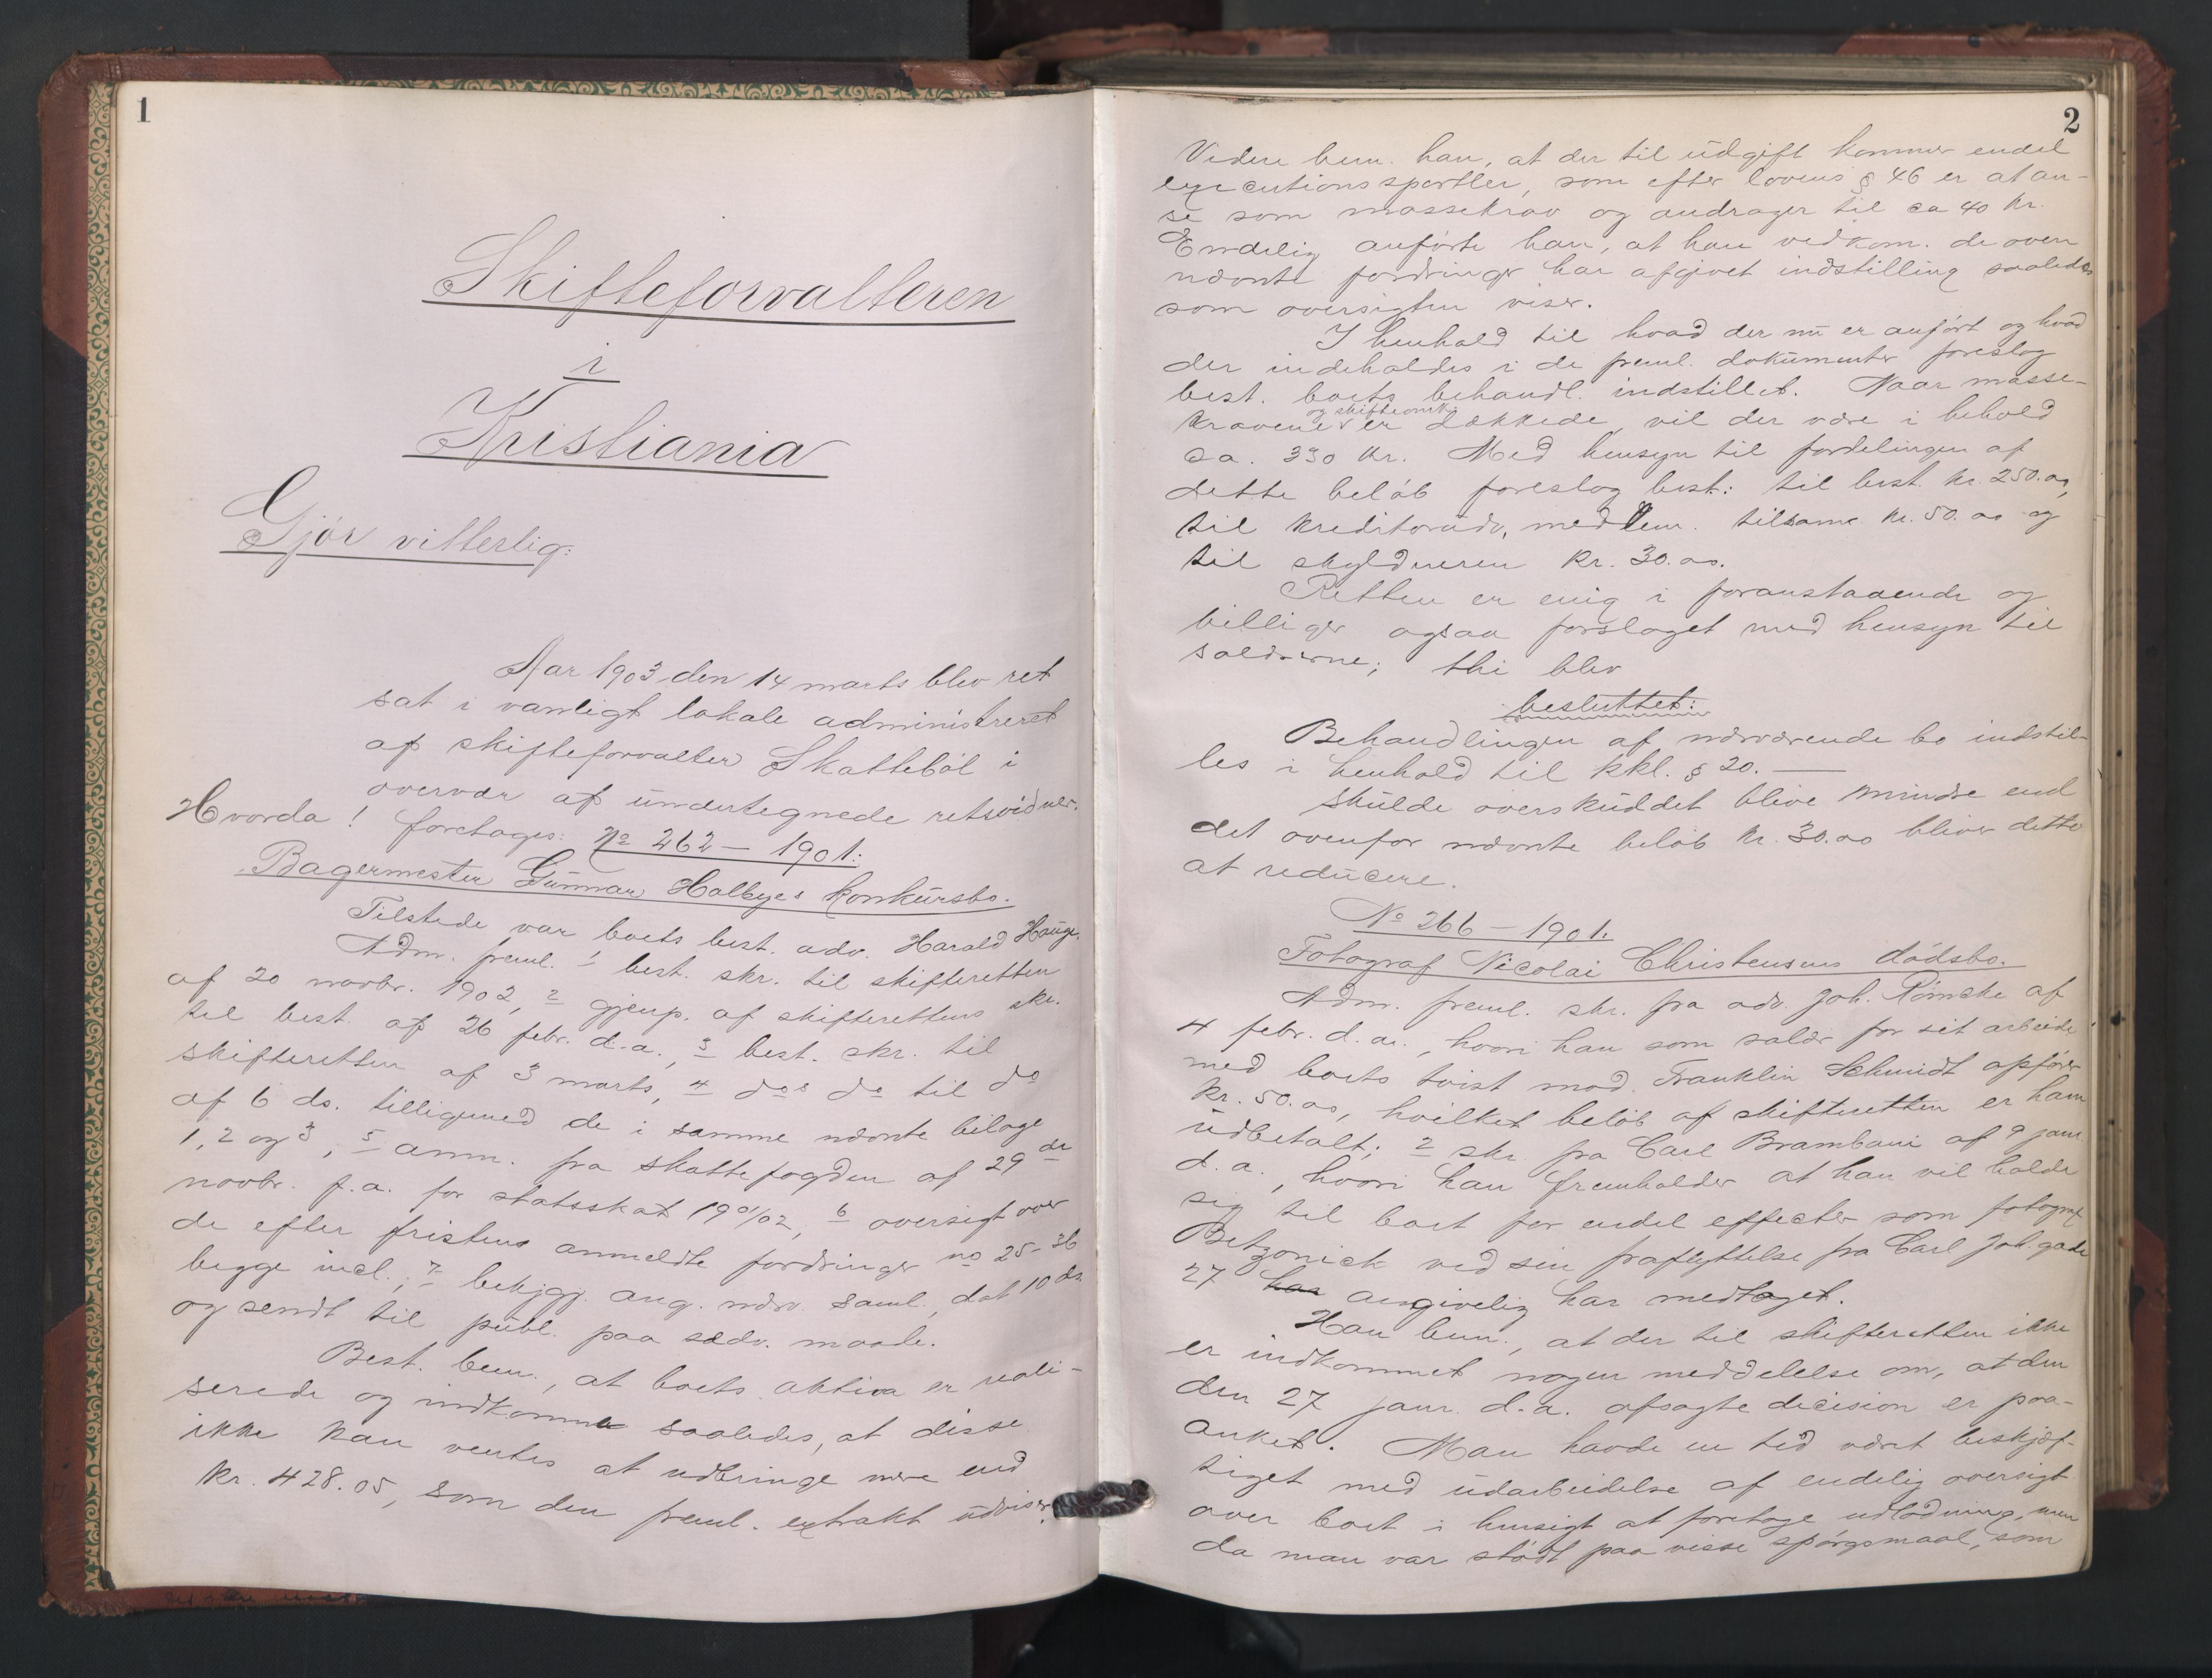 1
Skifteforvalteren
i
Kristiania
Gjør vitterlig:
Aar 1903 den 14 marts blev ret
sat i vanligt lokale administreret
af skifteforvalter Skattebøl i
overvær af undertegnede retsvidner.
Hvorda! foretages: No 262 – 1901:
Bagermester Gunnar Holbyes konkursbo.
Tilstede var boets best. adv. Harald Hauge.
Adm. freml. 1 best. skr. til skifteretten
af 20 novbr. 1902, 2 gjenp. af skifterettens skr.
til best. af 26 febr. d.a., 3 best. skr. til
skifteretten af 3 marts, 4 dos do til do
af 6 ds. tilligemed de i samme nævnte bilage
1, 2 og 3, 5 anm. fra skattefogden af 29 de
novbr. f.a. for statsskat 1901/02, 6 oversigt over
de efter fristens anmeldte fordringer no 25-36
begge incl.; 7 bekjgj. ang. nærv. saml., dat 10 ds.
og sendt til publ. paa sædv. maade.
Best. bem., at boets aktiva er reali-
serede og indkomne saaledes, at disse
ikke kan ventes at udbringe mere end
kr. 428.05, som den freml. extrakt udviser.
2
Videre bem. han, at der til udgift kommer endel
executionssportler, som efter lovens § 46 er at an-
se som massekrav og andrager til ca 40 kr.
Endelig anførte han, at han vedkom. de oven
nævnte fordringer har afgivet indstilling saaledes
som oversigten viser.
I henhold til hvad der nu er anført og hvad
der indeholdes i de freml. dokumenter foreslog
best. boets behandl. indstillet. Naar masse-
kravene og skifteomk. er dækkede, vil der være i behold
ca. 330 kr. Med hensyn til fordelingen af
dette beløb foreslog best.: til best. kr. 250.00,
til kreditorudv. medlem. tilsamm. kr. 50.00 og
til skyldneren kr. 30.00.
Retten er enig i foranstaaende og
billiger ogsaa forslaget med hensyn til
salærerne; thi blev
besluttet:
Behandlingen af nærværende bo indstil-
les i henhold til kkl. § 20. —
Skulde overskuddet blive mindre end
det ovenfor nævnte beløb kr. 30.00 bliver dette
at reducere.
No 266 – 1901.
Fotograf Nicolai Christensens dødsbo.
Adm. freml. skr. fra adv. Joh. Rømcke af
4 febr. d.a., hvori han som salær for sit arbeide
med boets tvist mod Franklin Schmidt opfører
kr. 50.00, hvilket beløb af skifteretten er ham
udbetalt; 2 skr. fra Carl Brambani af 9 janr.
d.a., hvori han fremholder at han vil holde
sig til boet for endel effecter som fotograf
Betzonick ved sin fraflyttelse fra Carl Joh. gade
27 har angivelig har medtaget.
Han bem., at der til skifteretten ikke
er indkommet nogen meddelelse om, at den
den 27 janr. d.a. afsagte decision er paa-
anket. Man havde en tid været beskjæf-
tiget med udarbeidelse af endelig oversigt
over boet i hensigt at foretage udlodning, men
da man var stødt paa visse spørgsmaal, som